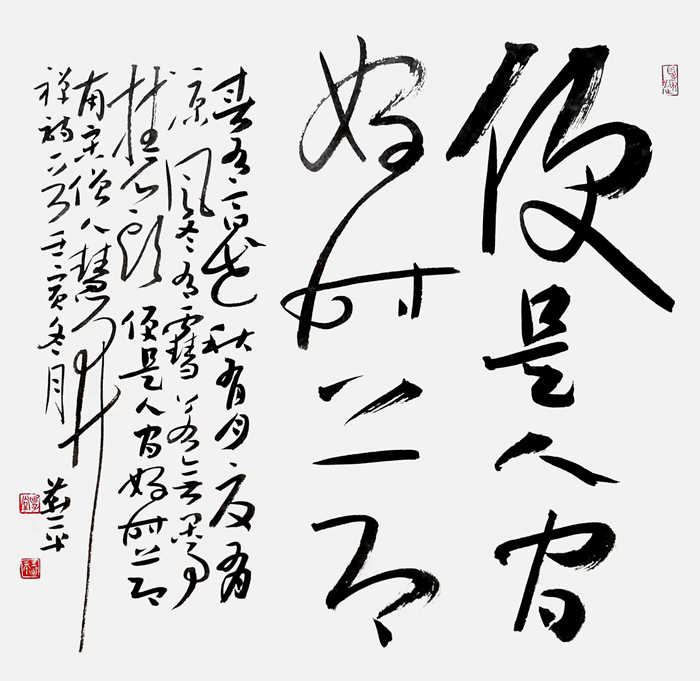 便是人间
好时节
春有百花秋有月夏有
凉风冬有雪若无闲事
挂心头便是人间好时节
南宋僧人慧开
禅诗一首壬寅冬月